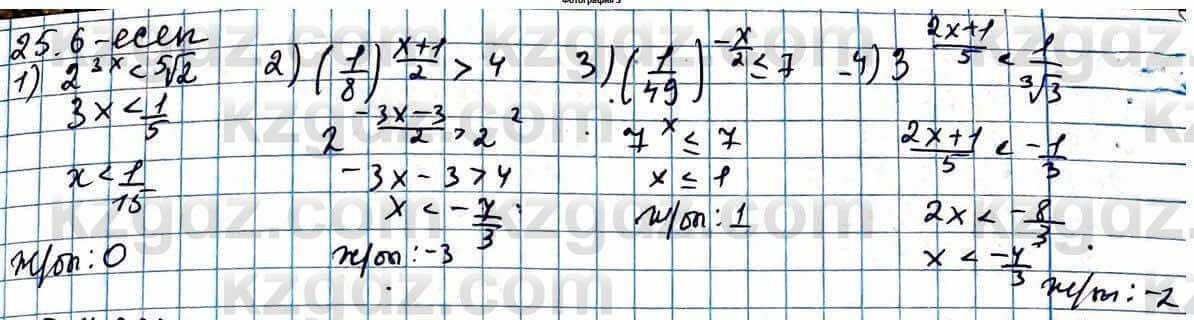 Фотография 3
25.6-есеп
1) 2^{3x} < ⁵√2
3x < 1/5
x < 1/15
ж/оп: 0
2) (1/8)^{(x+1)/2} > 4
2^{(-3x-3)/2} > 2^2
-3x-3 > 4
x < -7/3
ж/оп: -3
3) (1/49)^{-x/2} ≤ 7
7^x ≤ 7
x ≤ 1
ж/оп: 1
4) 3^{(2x+1)/5} < 1/∛3
(2x+1)/5 < -1/3
2x < -8/3
x < -4/3
ж/оп: -2
kzgdz.com